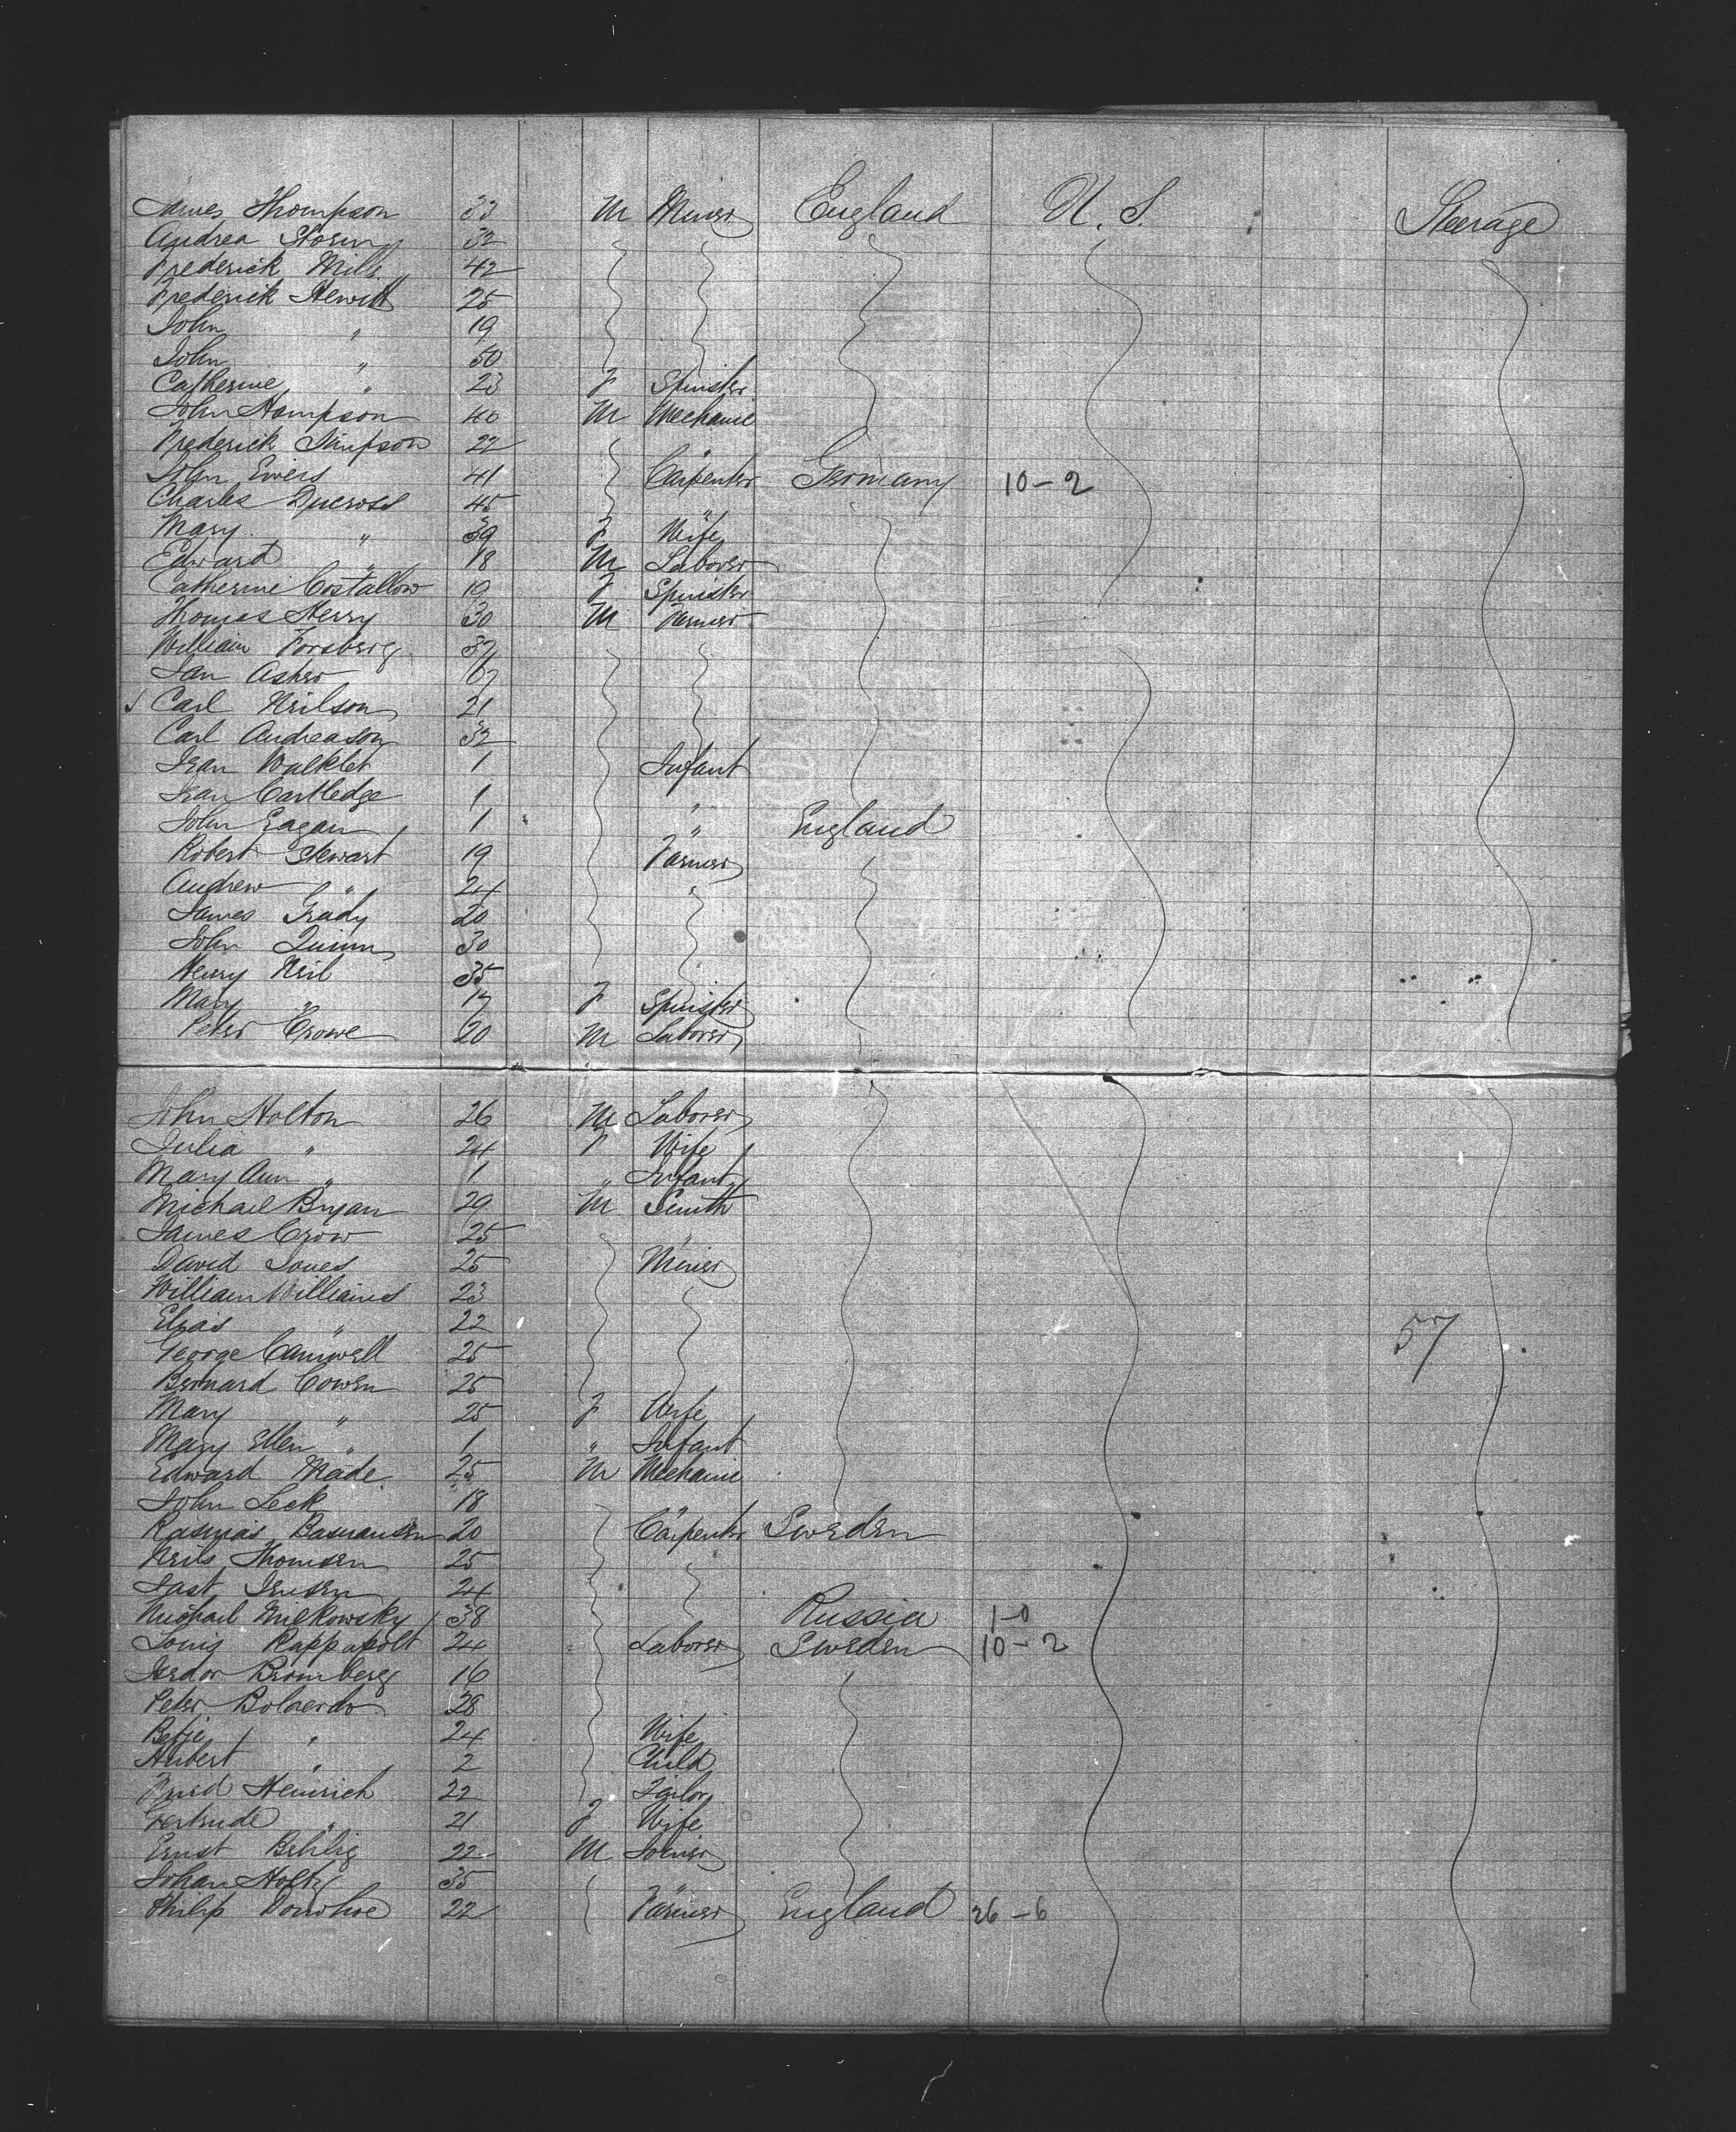 James Thompson 33 M Miner England U. S. Steerage
Andrea 32
Frederick Mills 42
Frederick Hewitt 25
John " 19
John " 50
Catherine " 23 F Spinster
John Hampson 40 M Mechanic
Frederick Simpson 22 "
John Ewers 41 Carpenter Germany 10-2
Charles 45 "
Mary " 39 F Wife
Edward " 18 M Laborer
Catherine Costallow 19 F Spinster
Thomas Henry 30 M Farmer
William Forsberg 37
Jan Asher
Carl Neilson 21
Carl Andreason 32
Ivan Walklet 1 Infant
Ivan Cartledge 1 "
John Eagan 1 " England
Robert Stewart 19 Farmer
Andrew " 24
James Grady 20
John Quinn 30
Henry Neil 35
Mary " 17 F Spinster
Peter Crowe 20 M Laborer
John Holton 26 M Laborer
Julia " 24 F Wife
Mary Ann " 1 " Infant
Michael Bryan 29 M Smith
James Crow 25 "
David Jones 25 Miner
William Williams 23
Elias " 22
George Camwell 25 57
Bernard Cowen 25
Mary " 25 F Wife
Mary Ellen " 1 " Infant
Edward Made 25 M Mechanic
John Leck 18 "
Rasmus 20 Carpenter Sweden
Neils Thomsen 25
Last Jensen 24
Michael Milkowsky 38 Russia 1-0
Louis Rappapolt 24 Laborer Sweden 10-2
Isedor Bromberg 16
Peter Bolaerdo 28
Betje " 24 Wife
Hubert " 2 Child
Heinrich 22 Tailor
Gertrude " 21 F Wife
Ernst Behlig 22 M Joiner
Johan Holtz 35 "
Philip Donohoe 22 Farmer England 26-6